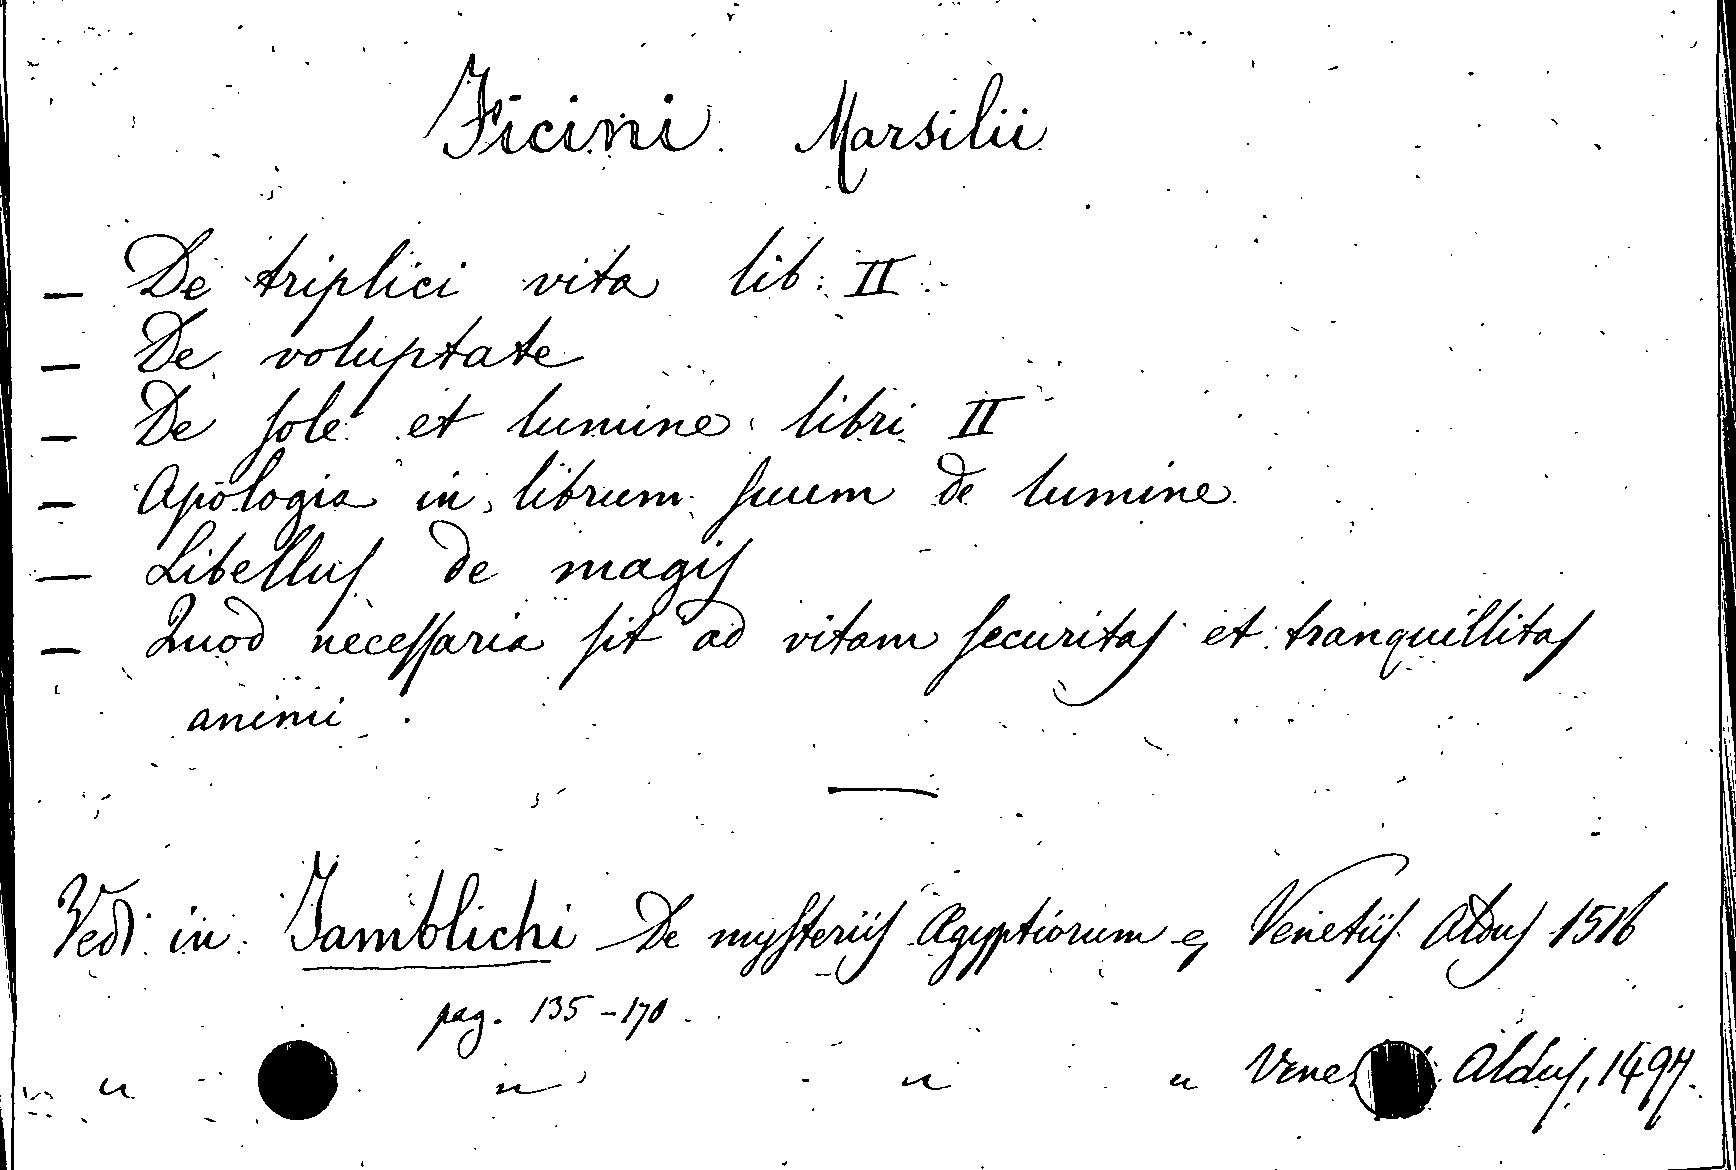 Ficini Marsilii
— De triplici vita lib. II.
— De voluptate
— De sole et lumine libri II
— Apologia in librum suum de lumine
— Libellus de magis
— Quod necessaria sit ad vitam securitas et tranquillitas
animi
Vedi in Jamblichi De mysteriis Ægyptiorum Venetiis Aldus 1516
pag. 135-170
" " " " Vene Aldus, 1497.